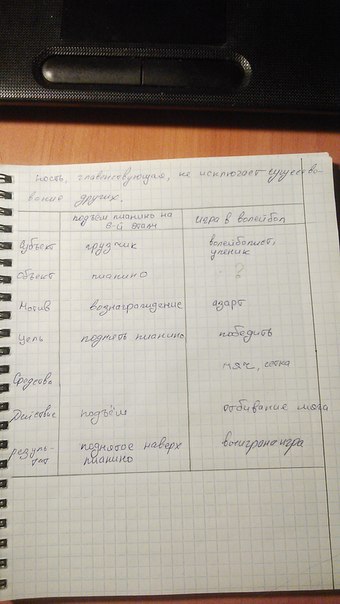 ность, главенствующая, не исключает существо-
вание других.
подъём пианино на
6-й этаж
игра в волейбол
Субъект грузчик волейболист,
ученик
Объект пианино ?
Мотив вознаграждение азарт
Цель поднять пианино победить
Средства мяч, сетка
Действие подъём отбивание мяча
резуль-
тат
поднятое наверх
пианино
выигрона игра